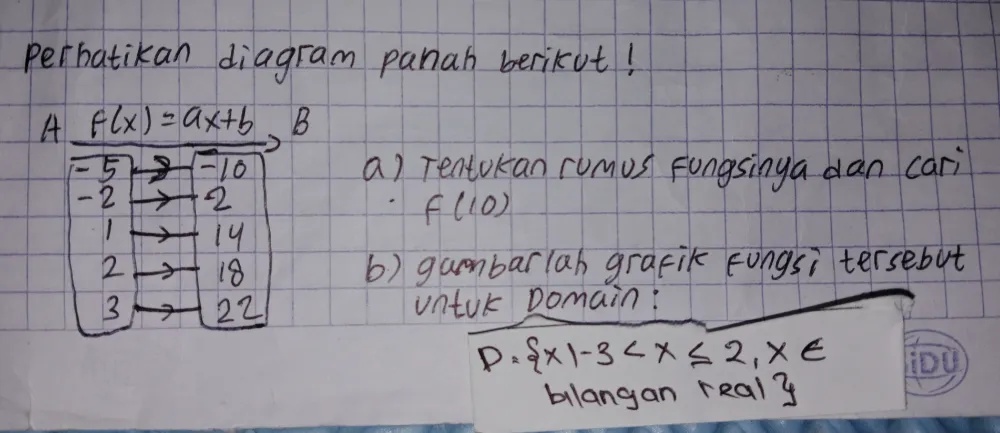 Perhatikan diagram panah berikut!
A f(x) = ax+b B
-5 → -10
-2 → 2
1 → 14
2 → 18
3 → 22
a) Tentukan rumus fungsinya dan cari
f(10)
b) gambarlah grafik fungsi tersebut
untuk Domain:
D = {x|-3 < x ≤ 2, x ∈
bilangan real}
iDU